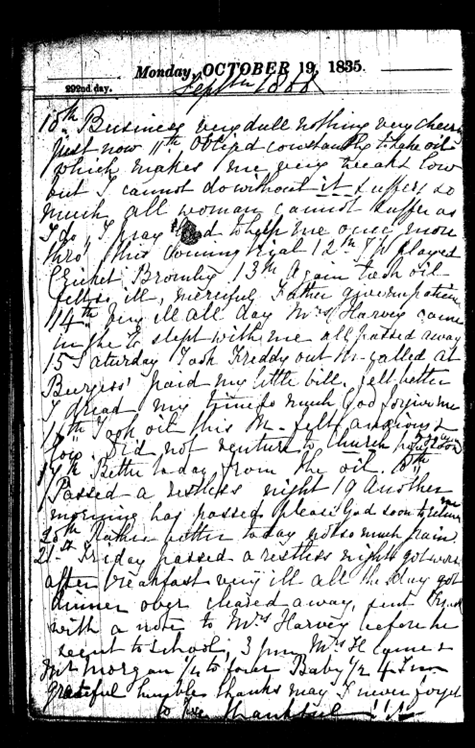 Monday, OCTOBER 19, 1835.
292nd day.
Septbr 1888
10th Business very dull nothing very cheery
just now 11th obliged constantly to take oil
which makes me very weak & low
but I cannot do without it suffers so
much all woman cannot suffer as
I do, I pray God to help me once more
thro' this coming trial 12th played
Cricket Bromley 13th Again took oil
felt so ill, merciful Father give me patience
14th Very ill all day Mrs Harvey came
in she slept with me all passed away
15 Saturday Took Freddy out called at
Burgess' paid my little bill. felt better
I dread my time so much God forgive me
16th Took oil this M. felt anxious &
low. Did not venture to church
17th Better today from the oil. 18th
Passed a restless night 19 Another
morning has passed please God soon to
20th Rather better today not so much pain
21st Friday passed a restless night got worse
after breakfast very ill all the day got
dinner over cleared away, sent
with a note to Mrs Harvey before he
went to school, 3 pm Mrs H came &
Morgan 1/4 to four Baby 1/2 4
grateful humble thanks may I never forget
to be thankful !!!